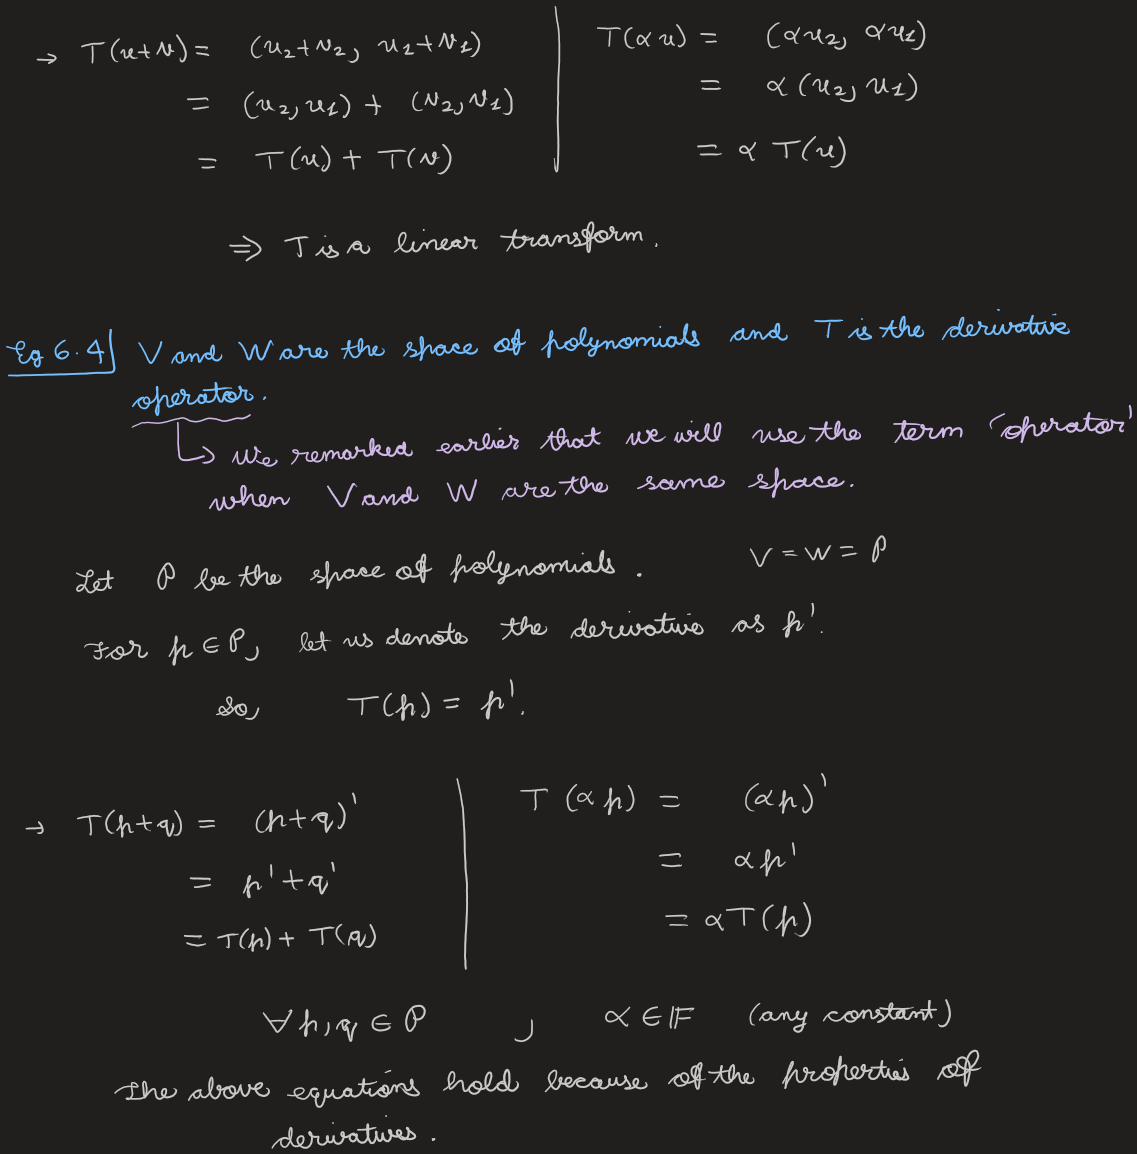 → T(u+v) = (u₂+v₂, u₁+v₁)
= (u₂,u₁) + (v₂,v₁)
= T(u) + T(v)
T(αu) = (αu₂, αu₁)
= α(u₂, u₁)
= α T(u)
⇒ T is a linear transform.
Eg 6.4 V and W are the space of polynomials and T is the derivative
operator.
↳ We remarked earlier that we will use the term 'operator'
when V and W are the same space.
Let P be the space of polynomials. V = W = P
For p ∈ P, let us denote the derivative as p'.
So, T(p) = p'.
→ T(p+q) = (p+q)'
= p'+q'
= T(p) + T(q)
T(αp) = (αp)'
= αp'
= αT(p)
∀ p,q ∈ P , α ∈ 𝔽 (any constant)
The above equations hold because of the properties of
derivatives.